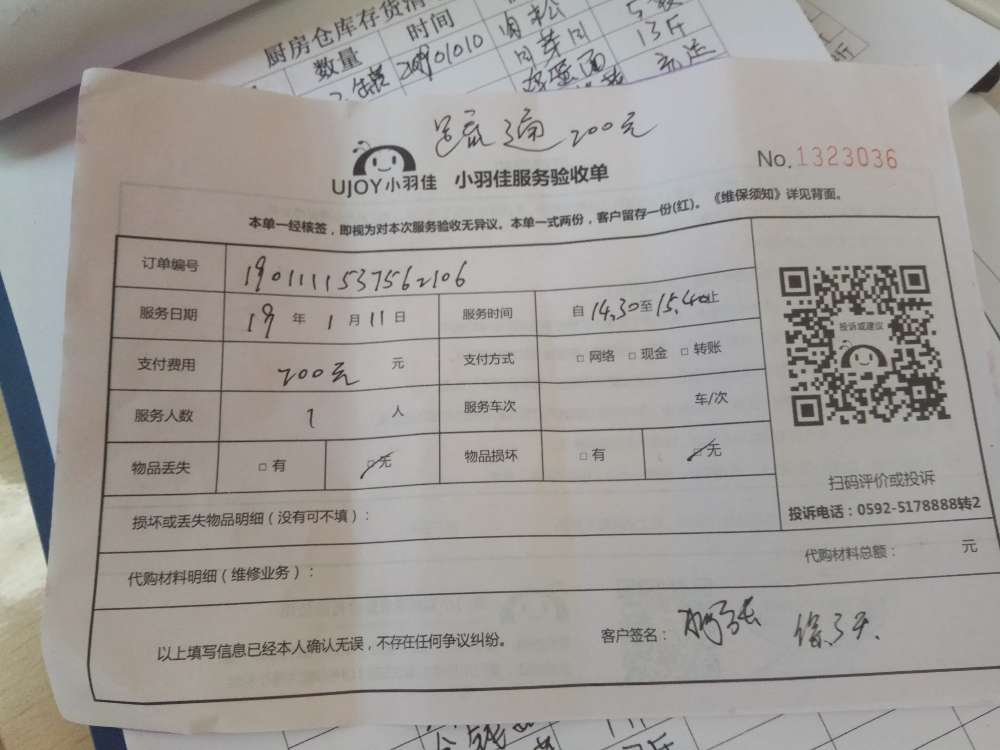 厨房仓库存货清
数量 时间
20190101​0 肉松
13斤
疏通200元
UJOY小羽佳 小羽佳服务验收单
No.1323036
本单一经核签，即视为对本次服务验收无异议。本单一式两份，客户留存一份(红)。《维保须知》详见背面。
订单编号 1901111537562106
服务日期 19 年 1 月 11 日 服务时间 自 14.30 至 15.40 止
支付费用 200元 元 支付方式 □ 网络 □ 现金 □ 转账
服务人数 1 人 服务车次 车/次
物品丢失 □ 有 □ 无 物品损坏 □ 有 □ 无
投诉或建议
扫码评价或投诉
投诉电话：0592-5178888转2
损坏或丢失物品明细（没有可不填）：
代购材料明细（维修业务）： 代购材料总额： 元
以上填写信息已经本人确认无误，不存在任何争议纠纷。 客户签名：